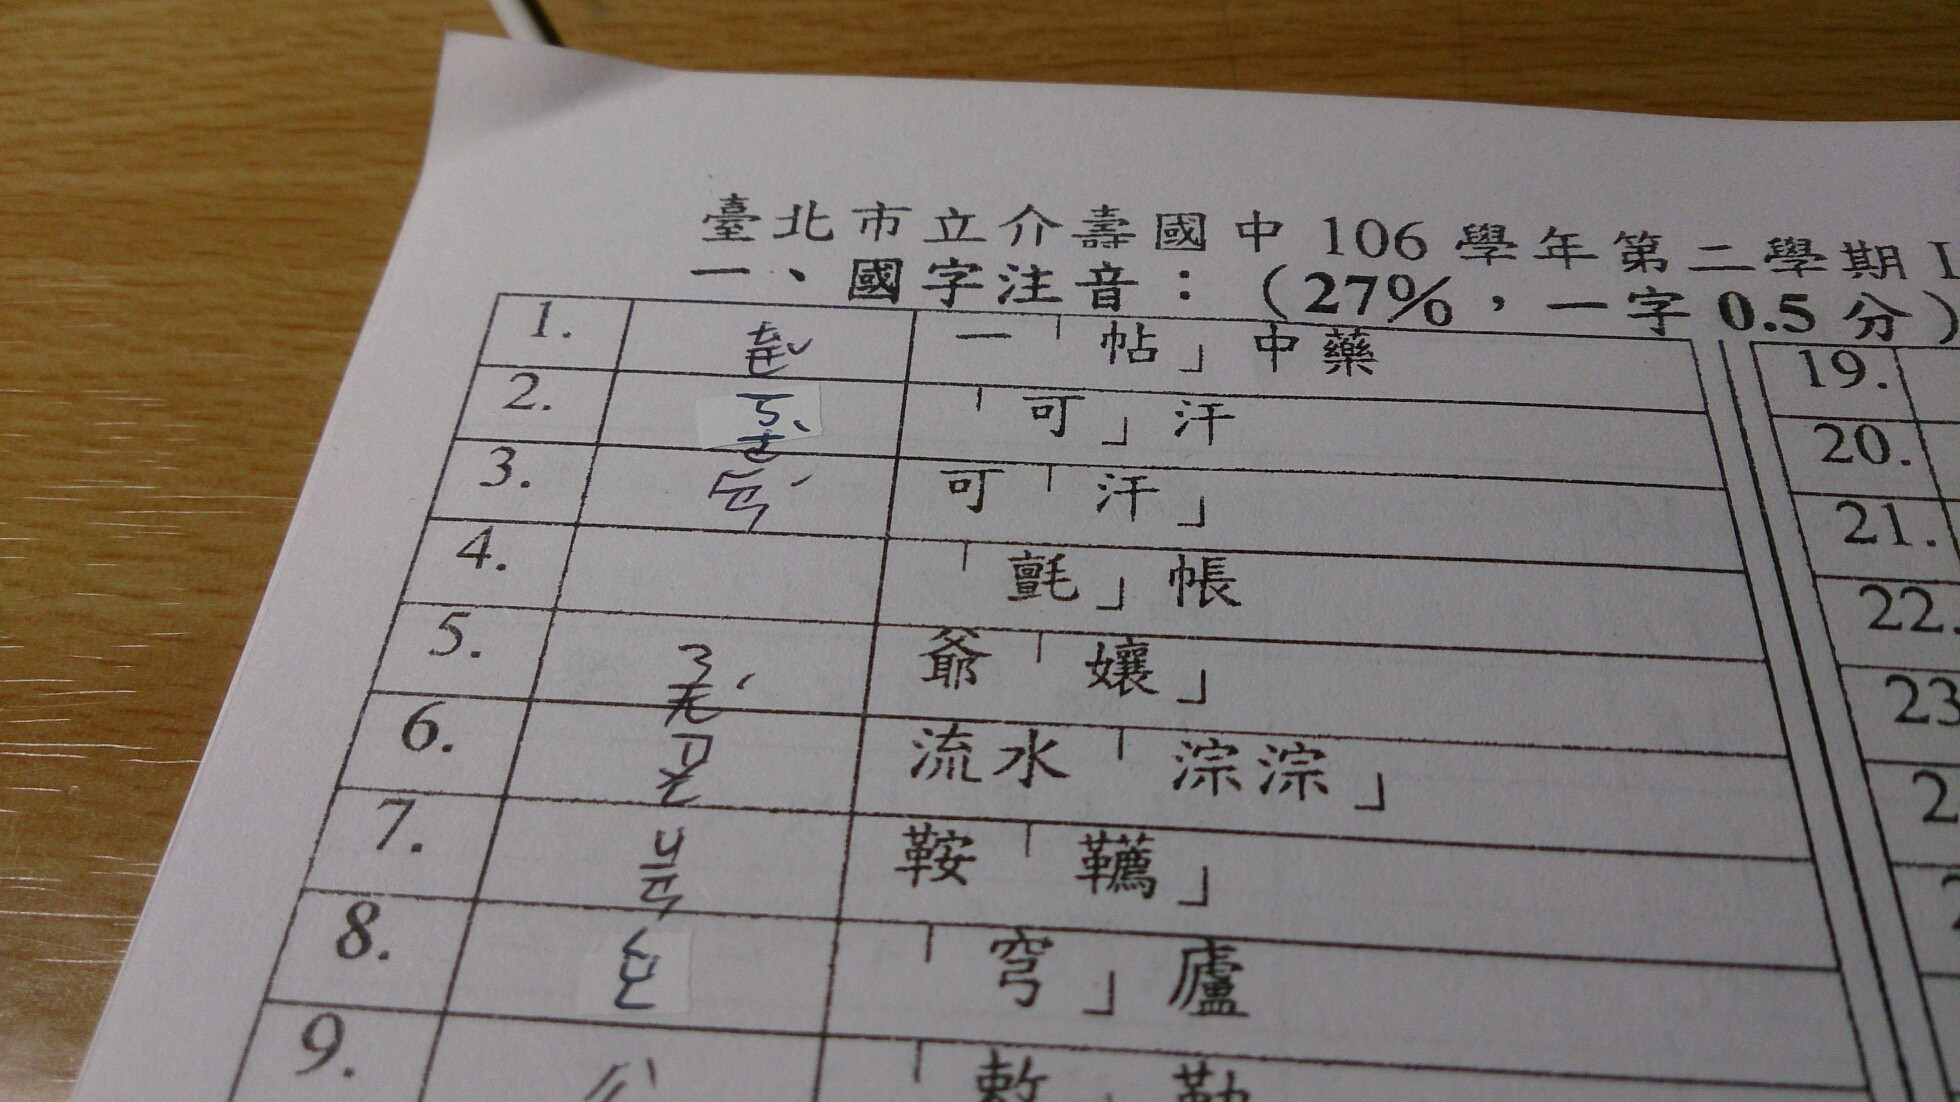 臺北市立介壽國中 106 學年第二學期 I
一、國字注音：（27%，一字 0.5 分）
1. ㄊㄧㄝˇ 一「帖」中藥
2. ㄎㄜˋ 「可」汗
3. ㄏㄢˊ 可「汗」
4. 「氈」帳
5. ㄋㄧㄤˊ 爺「孃」
6. ㄗㄨㄥ 流水「淙淙」
7. ㄐㄧㄢ 鞍「韉」
8. ㄑㄩㄥ 「穹」廬
9. 「敕」勒
19.
20.
21.
22.
23